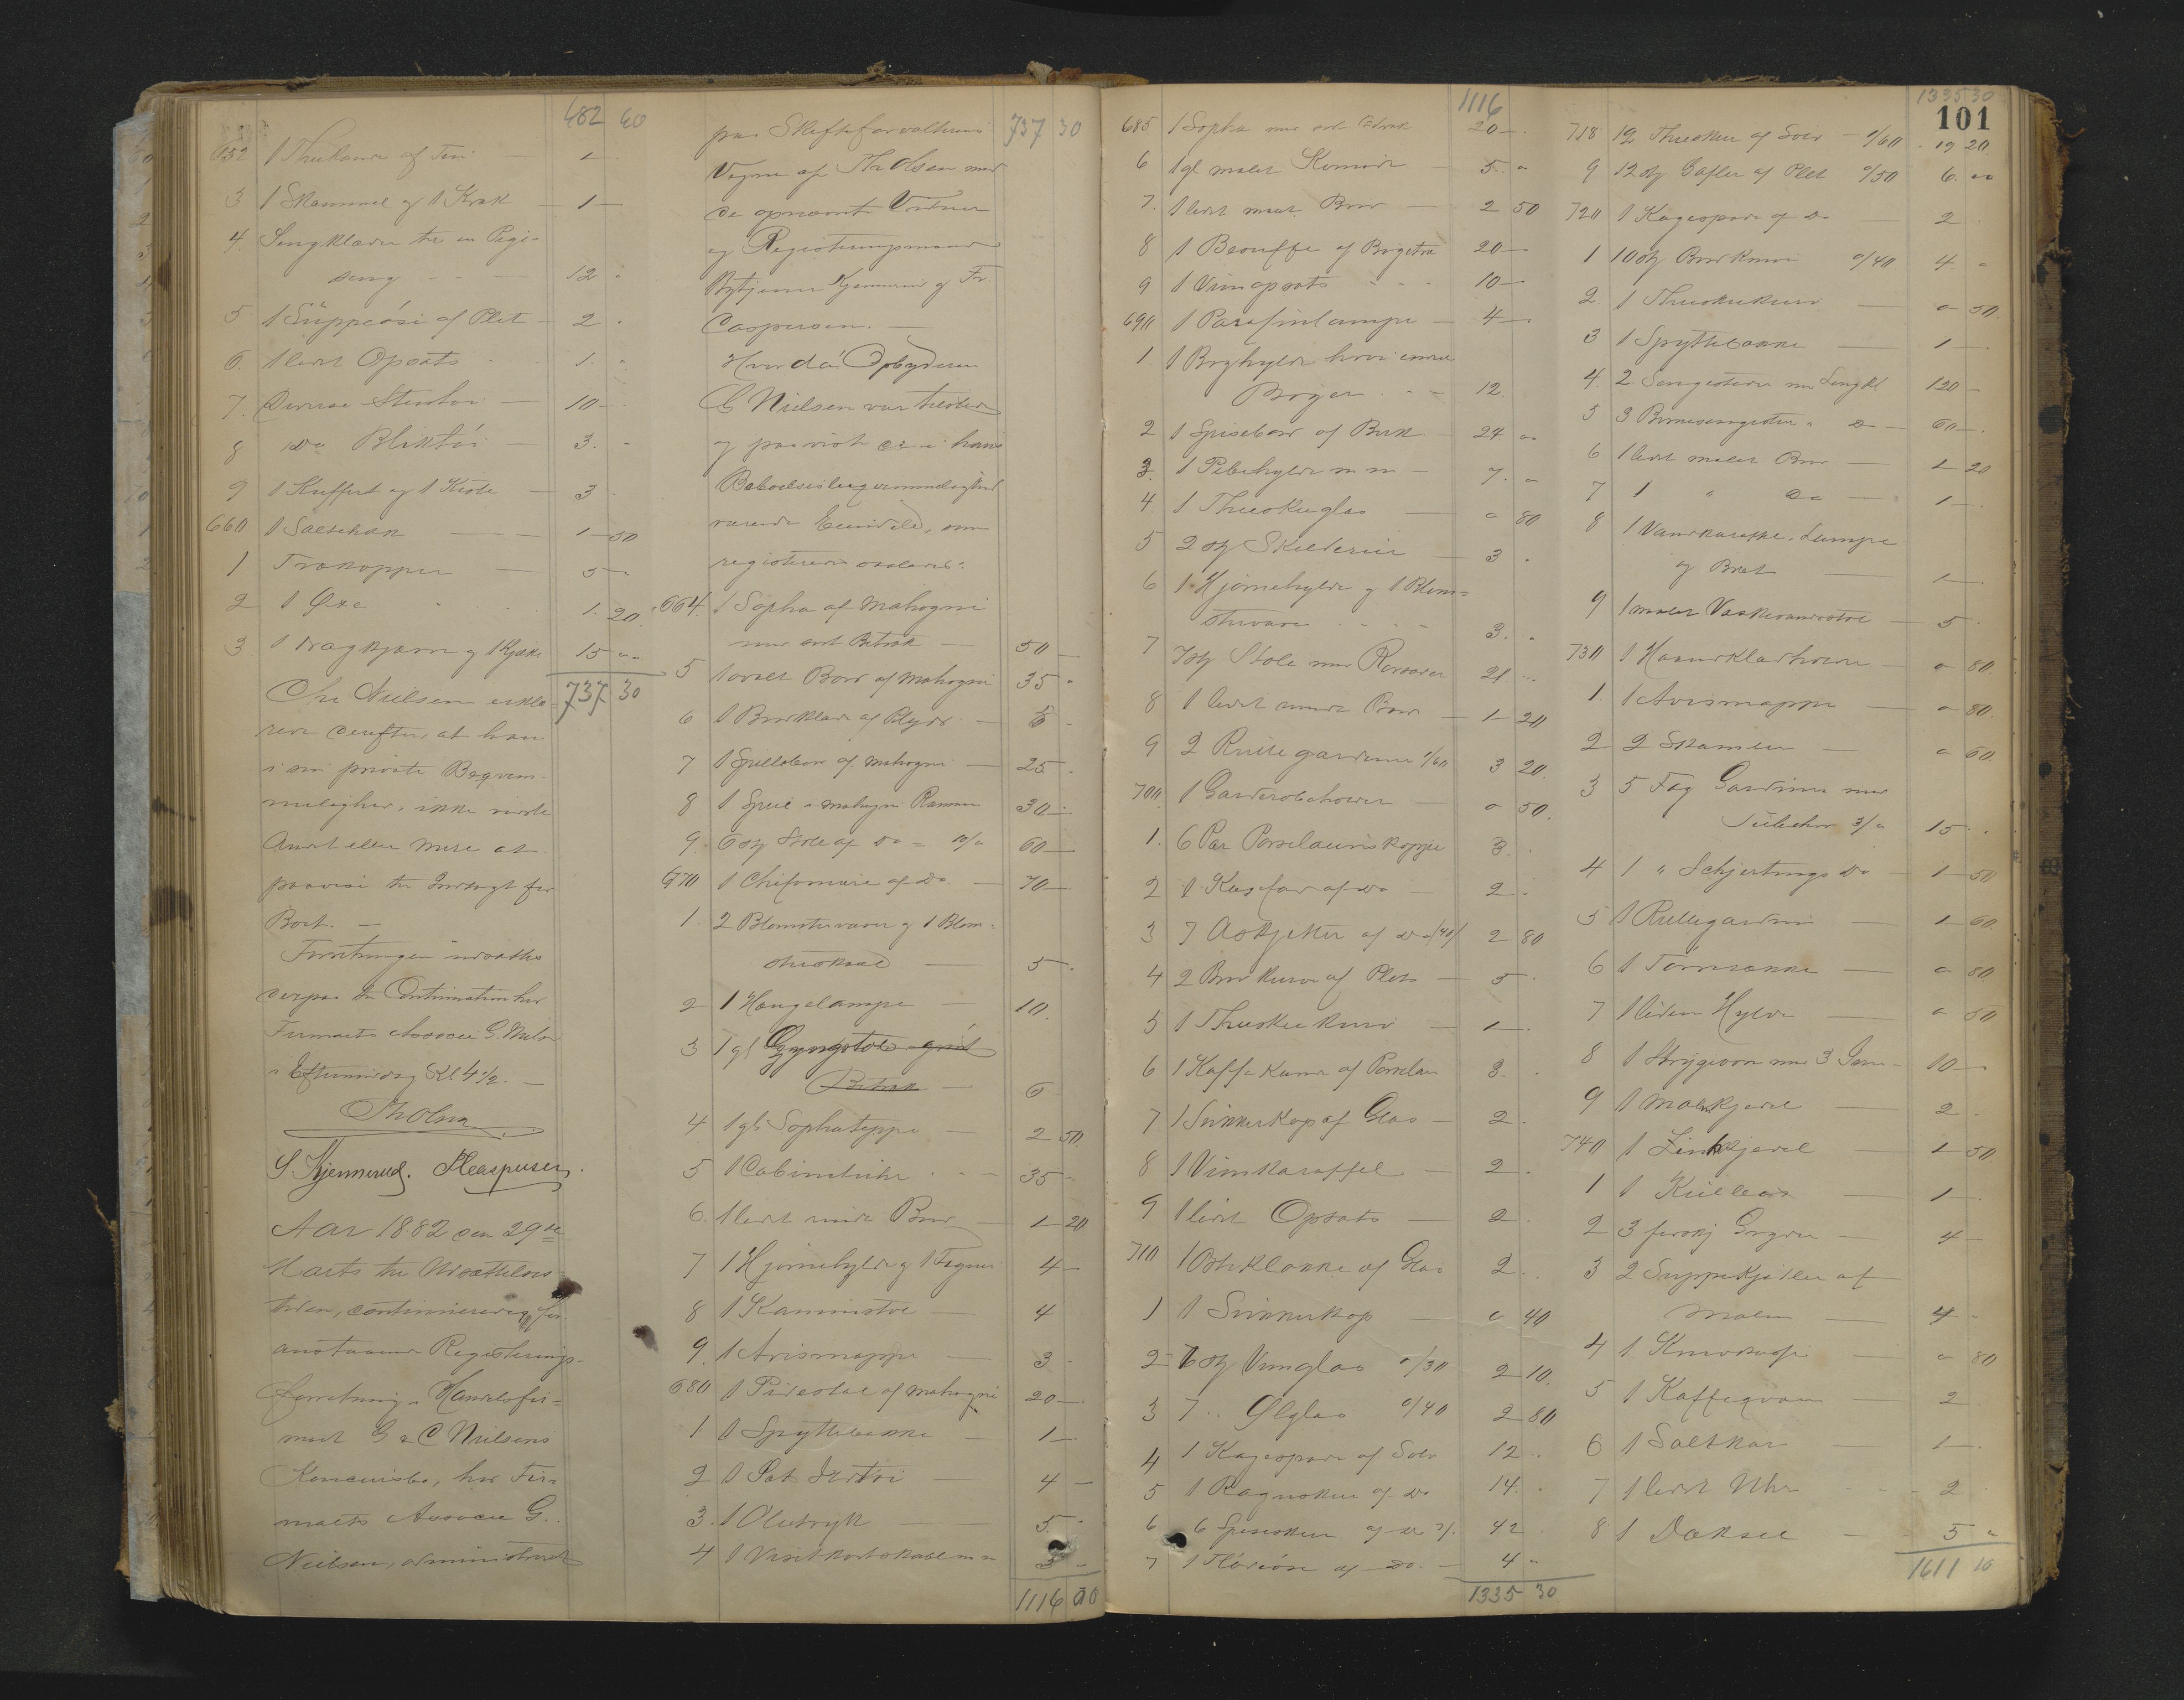 682 60
652 1 Thekande af Tin — 1 —
3 1 Skammel og 1 Krak — 1 —
4. Sengklæder til en Pige-
seng — 12 "
5 1 Suppeøse af Plet — 2 "
6. 1 lidet Opsats 1. "
7. Diverse Stentøi — 10 —
8 Do Bliktøi — 3. "
9 1 Kuffert og 1 Kiste — 3
660 1 Saltebak — 1 50
1 Trækopper — 5 "
2 1 Øxe 1. 20
3 1 Dragkjærre og 1 Kjælke 15 " "
737 30
Chr Nielsen erklæ-
rede derefter, at han
i sin private Beqvem-
melighed, ikke vidste
Andet eller mere at
paavise til Indtægt for
Boet. —
Forretningen udsattes
derpaa til Continuation hos
Firmaets Associe G. Nielsen
i Eftermiddag Kl 4½. —
Th Olsen
S. Kjennerud. F Caspersen.
Aar 1882 den 29de
Marts til Udsættelses-
tiden, continueredes for-
anstaaende Registrerings-
forretning i Handelsfir-
maet G & C Nielsens
Konkursbo, hos Fir-
maets Associe G.
Nielsen, administreret
paa Skifteforvalterens 737 30
Vegne af Th Olsen med
de opnævnte Vidner
og Registreringsmænd
Bytjener Kjennerud og Fr.
Caspersen. —
Hvorda Opbyderen
G Nielsen var tilstede
og paaviste de i hans
Beboelsesleilighed
værende Eiendele, som
registreredes saaledes:
664. 1 Sopha af Mahogni
med sort Betræk — 50 —
5 1 ovalt Bord af Mahogni 35 "
6 1 Bordklæde af Plyds — 5 "
7 1 Spillebord af Mahogni — 25 "
8 1 Speil i Mahogni Ramme 30 —
9. 6 Stk Stole af Do " 10/" 60 —
670 1 Chifoniere af Do — 70 —
1. 2 Blomstervaser og 1 Blom-
sterskaal — 5 "
2 1 Hængelampe — 10.
3 1 gl Gyngestol
Betræk — 6
4 1 gl Sophateppe — 2 50
5 1 Cabinetuhr — 35 "
6. 1 lidet rundt Bord — 1 20
7 1 Hjørnehylde og 1 Figur 4 —
8 1 Kaminstol — 4
9. 1 Avismappe — 3 "
680 1 Pidestal af Mahogni 20 —
1 1 Spyttebakke — 1 —
2 1 Sæt Ildtøi — 4 —
3. 1 Olietryk — 5. "
4 1 Visitkortskaal m m 3 "
1116 00
1116
685 1 Sopha med sort Betræk 20 —
6 1 gl malet Komode — 5 "
7. 1 lidet malet Bord — 2 50
8 1 Beouffe af Birketræ 20 —
9 1 Vinopsats 10 —
690 1 Parafinlampe — 4 —
1. 1 Boghylde hvori endel
Bøger 12.
2 1 Spisebord af Birk 24 " "
3. 1 Pibehylde m m — 7. "
4 1 Theskeeglas — " 80
5 2 Stk Skilderier — 3 "
6 1 Hjørnehylde og 1 Blom-
stervase 3. "
7 7 Stk Stole med Rørsæder 21 "
8 1 lidet rundt Bord — 1 20
9 2 Rullegardiner 1/60 3 20
700 1 Garderobeholder — " 50.
1. 6 Par Porselainskopper 3
2 1 Kagefad af Do — 2 "
3 7 Asjetter af Do "/40/ 2 80
4 2 Brødkurve af Plet — 5 "
5 1 Theskeekurv — 1 —
6 1 Kaffekande af Porselain 3 "
7 1 Sukkerkop af Glas — 2
8 1 Vinkaraffel — 2
9 1 lidet Opsats — 2
710 1 Osteklokke af Glas 2
1 1 Sukkerkop — " 40
2 7 Stk Vinglas "/30 2 10.
3 7 " Ølglas "/40 2 80
4 1 Kagespade af Sølv 12 "
5 1 Raguskee af Do 14 "
6 6 Spiseskeer af Do 7/. 42
7 1 Flødeøse af Do. — 4 "
1335 30
1335 30
101
718 12 Theskeer af Sølv — "/60 19 20
9 12 Stk Gafler af Plet "/50 6. " "
720 1 Kagespade af Do — 2
1 10 Stk Bordknive "/40 4. "
2 1 Theskeekurv — " 50.
3 1 Spyttebakke — 1 —
4. 2 Sengesteder med Sengkl 120 —
5 3 Børnesengesteder " Do — 60 —
6 1 lidet malet Bord — 1 20
7 1 " Do — 1 —
8 1 Vandkaraffel, Lampe
og Bret — 1 —
9 1 malet Vaskevandsstol — 5
730 1 Haandklædholder — " 80
1. 1 Avismappe — " 80.
2 2 Skamler — " 60
3 5 Fag Gardiner med
Tilbehør 3/" 15 "
4 1 " Schjertings Do — 1 50
5 1 Rullegardin — 1 60
6 1 Tørrestakke — " 80
7 1 liden Hylde — " 50
8 1 Strygeovn med 3 Jern — 10 —
9 1 Malmkjedel — 2
740 1 Zinkkjedel — 1 50
1 1 Kulleas — 1 —
2 3 forskj Gryder — 4 —
3 2 Suppekjedler af
Malm — 4 "
4 1 Knivkasse — " 80
5 1 Kaffeqværn — 2
6 1 Saltkar — 1 —
7 1 lidet Uhr — 2
8 1 Dæksel — 5 "
1611 10